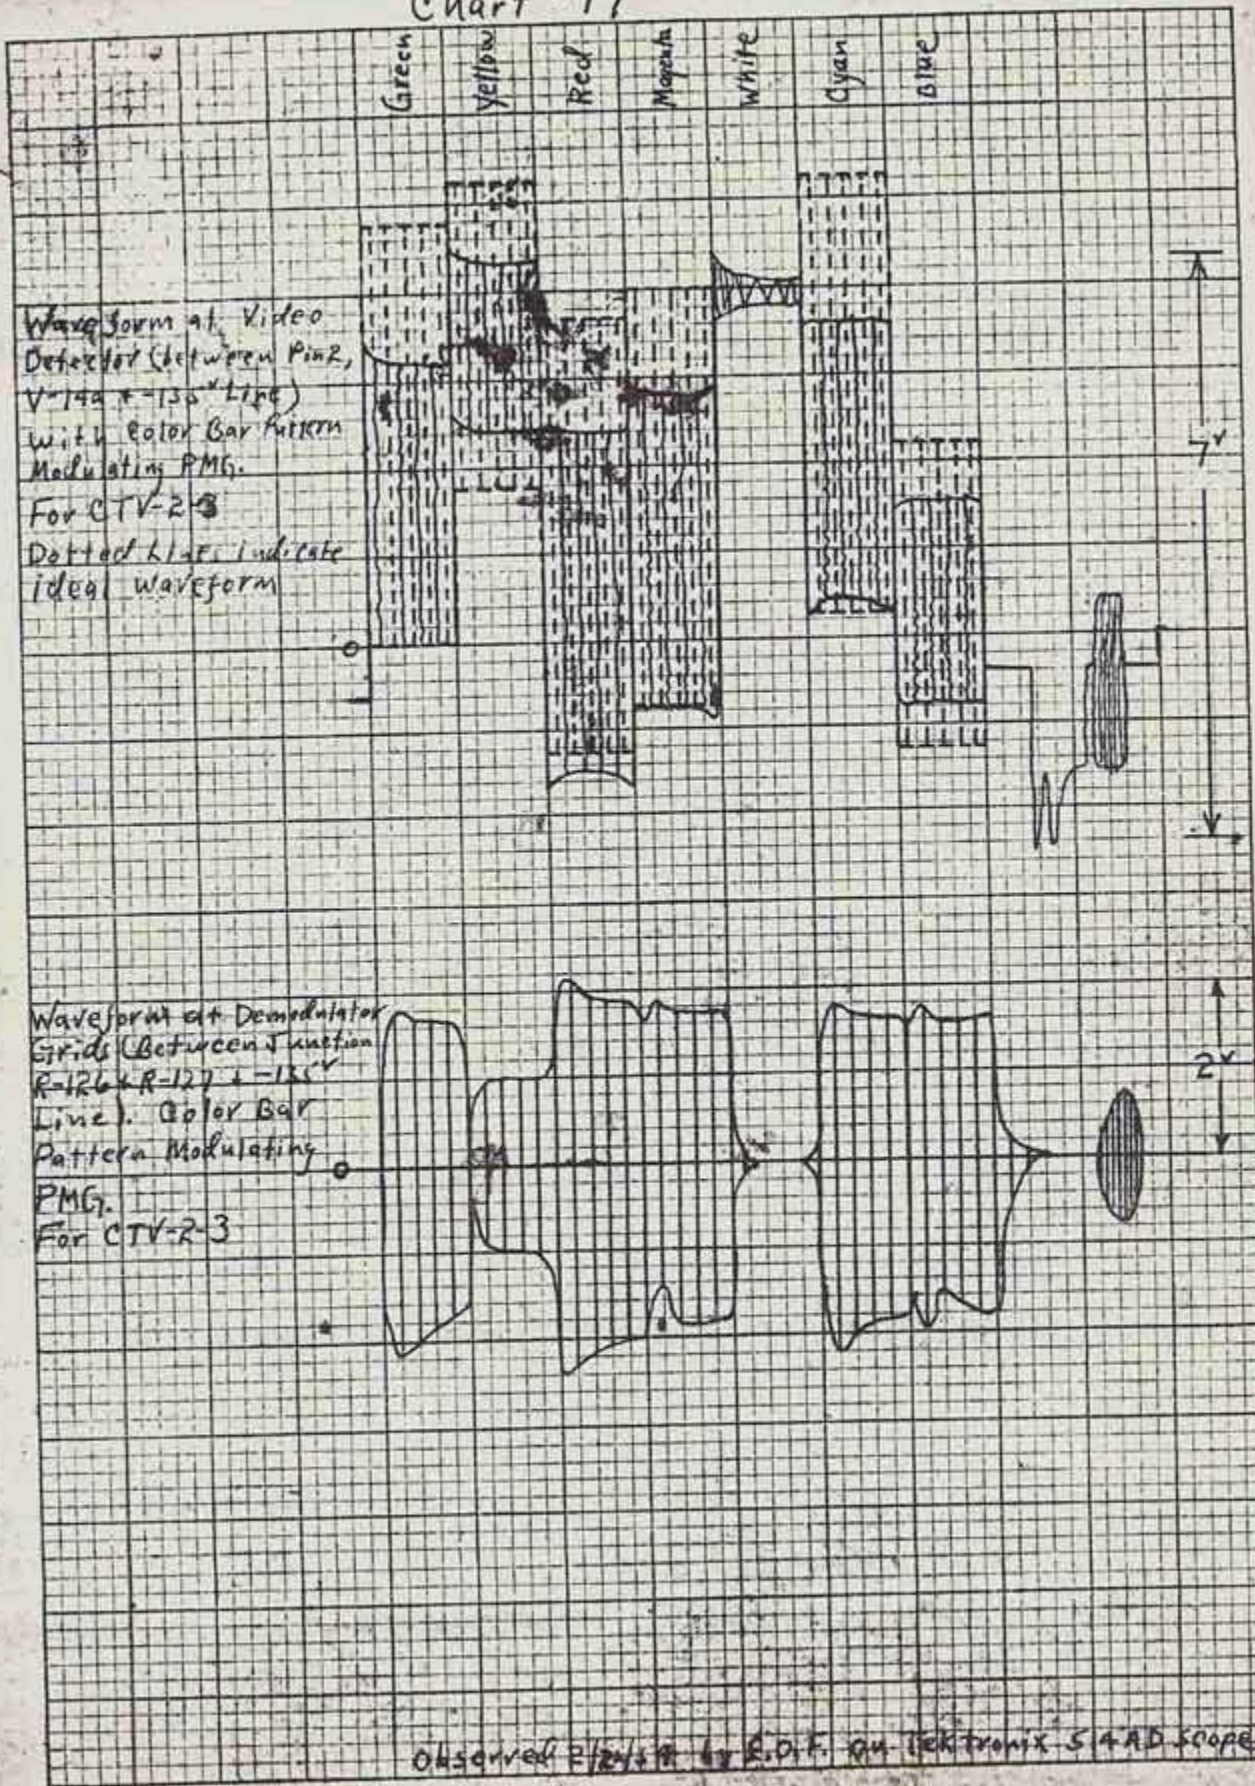 Chart 17
Green
Yellow
Red
Magenta
White
Cyan
Blue
Waveform at Video
Detector (between Pin2,
V-14a + -135v Line)
with Color Bar Pattern
Modulating PMG.
For CTV-2-3
Dotted Lines indicate
ideal waveform
0
7v
Waveform at Demodulator
Grids (Between Junction
R-126 & R-127 + -135v
Line). Color Bar
Pattern Modulating
0
PMG.
For CTV-2-3
2v
Observed by E.O.F. on Tektronix 514AD Scope